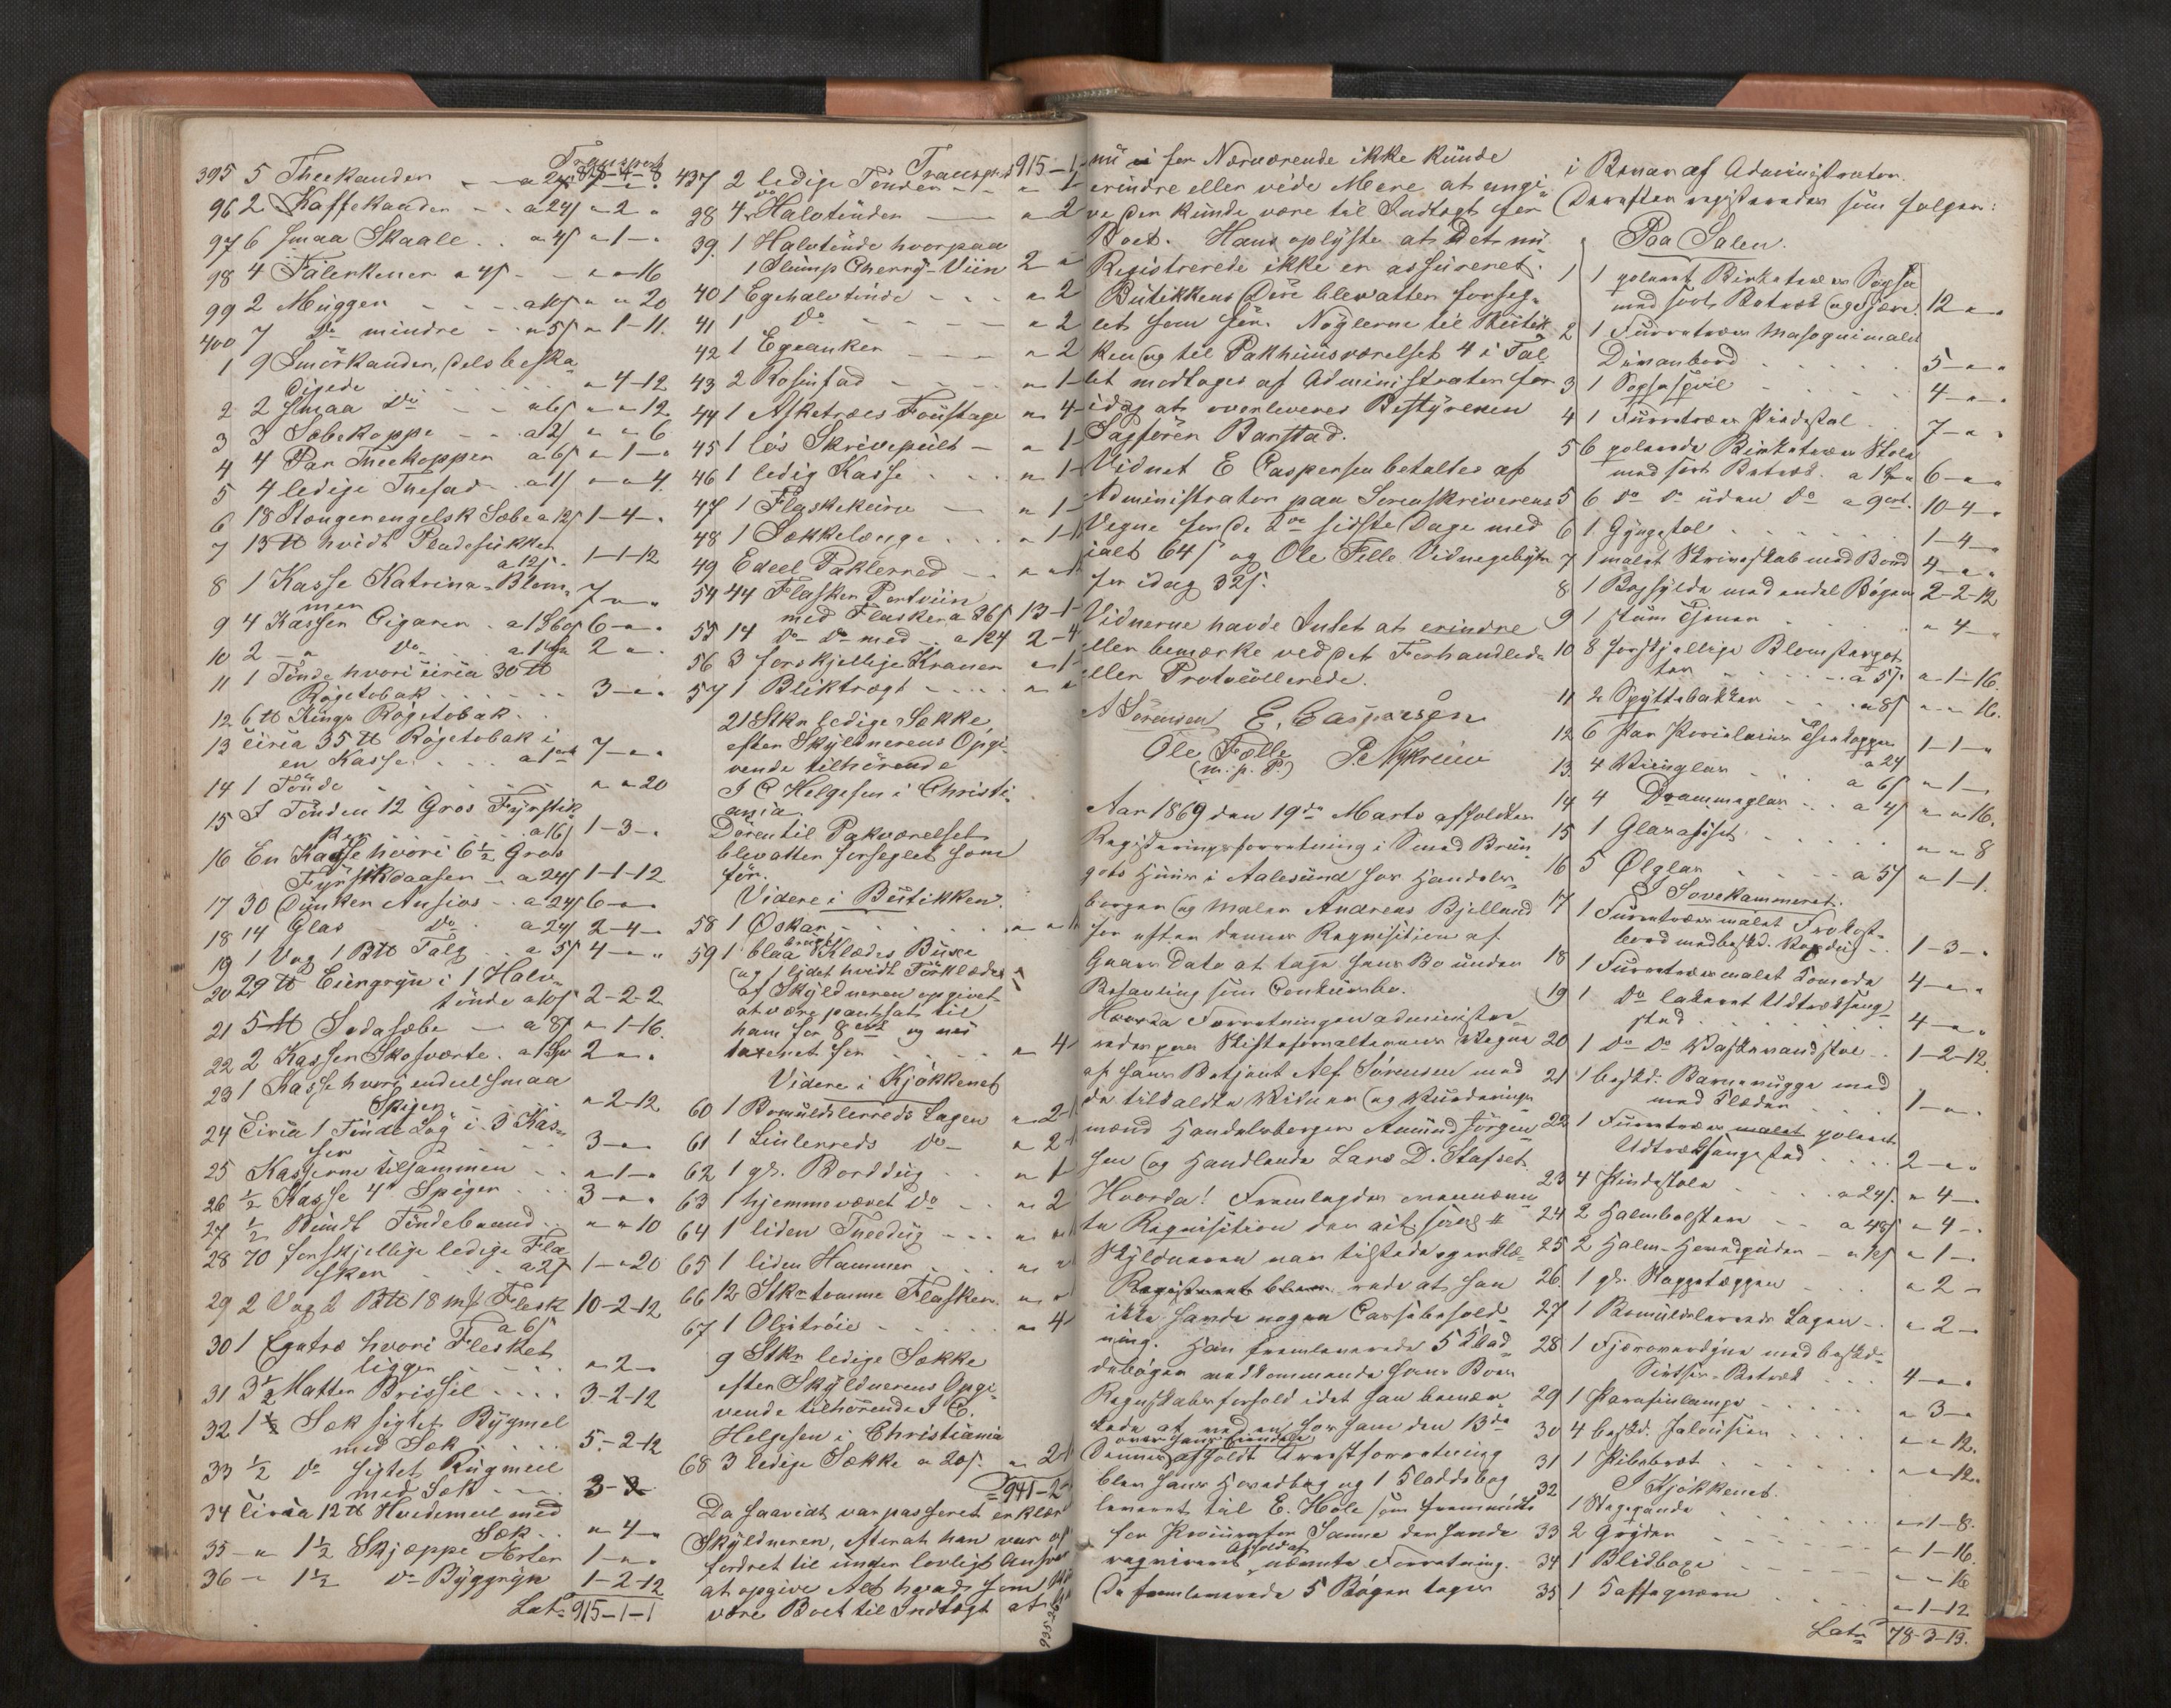 Transport 828-4-8
395 5 Theekander - a 24/ 1-"-"
96 2 Kaffekander - - a 24/ " 2 "
97 6 smaa Skaale . . a 4/ " 1 - "
98 4 Tallerkener a 4/ - - " " 16
99 2 Mugger - - - a 10/ " " 20
400 7 do mindre - - a 5/ " 1-11.
1 9 Smörkander, dels beska-
digede . . . . . . " 4-12
2 2 smaa do - - a 6/ " " 12
3 3 Sæbekoppe - - a 2/ " " 6
4 4 Par Theekopper a 6/ " 1 - "
5 4 ledige Theefad . a 1/ " " 4.
6 18 Stænger engelsk Sæbe a 12/ 1-4-"
7 13 ℔ hvidt Pladesukker
a 12/ . 1-1-12
8 1 Kasse Katrina-Blom-
mer 7-"-"
9 4 Kasser Cigarer . a 1 Sp 60/ 6-"-"
10 2 - " do . a 1 Sp 2 " .
11 1 Tönde hvori circa 30 ℔
Rögetobak . . . . . . 3-"-"
12 6 ℔ Rögetobak . .
13 circa 35 ℔ Rögetobak i
en Kasse . . . . a 1 ort 7-"-"
14 1 Tönde . . . . " " 20
15 I Tönden 12 Gros Fyrstik-
ker . . . . . a 16/ 1-3-"
16 En Kasse hvori 6½ Gros
Fyrstikdaaser - a 24/ 1-1-12
17 30 Dunker Ansios - . a 24/ 6-"-"
18 14 Glas do . a 24/ 2-4-"
19 1 Vog 1 B℔ Talg . a 5/ 4-"-"
20 29 ℔ Eiergryn i 1 Halv-
tönde a 10/ 2-2-2
21 5 ℔ Sodasæbe - a 8/ " 1-16.
22 2 Kasser Skosværte . a 1 Sp 2 " .
23 1 Kasse hvori endeel smaa
Spiger - - . . " 2-12
24 Circa 1 Tönde Log i 3 Kas-
ser - - - - 3-"-"
25 Kasserne tilsammen - . " 1 - "
26 ½ Kasse 4" Spiger - . . 3-"-"
27 ½ Bundt Töndebaand . . " " 10
28 70 forskjellige ledige Fla-
sker . . . . a 2/ 1-"-20
29 2 Vog 2 B℔ 18 m/ Flesk
a 6/ 10-2-12
30 1 Egetræ hvori Flesket
ligger - - - " 2 - "
31 3½ Matter Brissil . . . . 3-2-12
32 1 Sæk sigtet Bygmel
med Sæk . . . . 5-2-12
33 ½ do sigtet Rugmeel
med Sæk - . . 3-3
34 Circa 12 ℔ Hvedemeel med
Sæk . . " 4 - "
35 - " 1½ Skjæppe Erter 1-"-"
36 - " 1½ do Byggryn 1-2-12
Lats 915-1-1
Transport 915-1-
437 2 ledige Tönder - - " 1-
38 4 do Halvtönder - " 2
39. 1 Halvtönde hvorpaa
1 Slump Cherry-Viin 2 "
40 1 Egehalvtönde - - . " 2
41 1 do - - - - - " 2
42 1 Egeanker - - - " 2
43 2 Rosinfad - - - - " 1-
44 1 Asketræes Foustage " 4
45 1 lös Skrivepult - " 1-
46 1 ledig Kasse . . . " 1-
47 1 Flaskekurv - " 1-
48 1 Sækkelænge . . . " 1-
49 Edeel Paklerred - - "
54 44 Flasker Portviin
med Flasker a 36/ 13-1-
55 14 do do med - a 124 2-4
56 3 forskjellige Kraner " 1-
57 1 Bliktragt - . . . " "
21 Stkr ledige Sække
efter Skyldnerens Opgi-
vende tilhörende
I C Helgesen i Christi-
ania.
Dören til Pakværelset
blev atter forseglet som
för.
Videre i Butikken.
58 1 Öskar . . . . . . .
59 1 blaa brugt Klædes Buxe
og 1 lidet hvidt Törklæde
af Skyldneren opgivet
at være pantsat til
ham for 8 ort og nu
taxeret for . . . . . " 4
Videre i Kjökkenet
60 1 Bomuldslerreds Lagen " 2
61 1 Linlerreds do - " 2
62 1 gl. Borddug - . " 1
63 1 hjemmevævet do . . " 2
64 1 liden Theedug - - - "
65 1 liden Hammer . . . "
66 12 Stkr tomme Flasker . "
67 1 Oljetröie - - - - - " 4
9 Stkr ledige Sække
efter Skyldnerens Opgi-
vende tilhörende I C.
Helgesen i Christiania
68 3 ledige Sække a 20/. " 2
941-2
Da saavidt var passeret erklær
Skyldneren, efterat han var op
fordret til under lovligt Ansvar
at opgive Alt hvad som
være Boet til Indtægt at
935-2
nu ei for Nærværende ikke kunde
erindre eller vide Mere at angi-
ve der kunde være til Indtægt for
Boet. Hans oplyste at det nu
Registrerede ikke er assureret.
Butikkens Döre blev atter forseg-
let som för. Nöglerne til Butik-
ken og til Pakhuusværelset 4 i Tal-
let modtages af Administrator for
idag at overleveres Bestyreren
Sagförer Barstad.
Vidnet E Caspersen betaltes af
Administrator paa Sorenskriverens
Vegne for de 2de sidste Dage med
ialt 64/ og Ole Felle Vidnegebyhr
for idag 32/
Vidnerne havde Intet at erindre
eller bemærke ved det Forhandlede
eller Protokollerede.
A Sörensen E. Caspersen
Ole Fælle P. Nykreim
(m. p. P.)
Aar 1869 den 19de Marts afholdtes
Registreringsforretning i Smed Brun-
gots Huus i Aalesund hos Handels-
borger og Maler Andreas Bjellund
for efter dennes Requisition af
Gaars Dato at tage hans Bo under
Behandling som Concursbo.
Hvorda Forretningen administre-
redes paa Skifteforvalterens Vegne
af hans Betjent Alf Sörensen med
de tilkaldte Vidner og Vurderings-
mænd Handelsborger Amund Jörgen-
sen og Handlende Lars D. Stafset.
Hvorda! Fremlagdes ovennævn-
te Requisition der ait saal. #
Skyldneren var tilstede og erklæ-
rede at han
ikke havde nogen Cassebehold-
ning. Han fremleverede 5 Klad-
debøger vedkommende hans Boes
Regnskabsforhold idet han bemær-
kede at ved en hos ham den 13de
Dennes afholdt Arrestforretning
blev hans Hovedbog og 1 Kladdebog
leveret til E. Hole som fremmödte
for Requirenten Samme der havde
requireret Afholdelse af nævnte Forretning.
De fremleverede 5 Böger tages
i Bevar af Administrator.
Derefter registreredes som følger:
Paa Salen.
1 1 poleret Birketræes Sopha
med sort Betræk og Fjære 12-"-"
2 1 Furretræes Mahognimalet
Divanbord . . . . . 5-"-"
3 1 Sophaspeil . . . . 4-"-"
4 1 Furretræes Pindestol . . 7-"-"
5 6 polerede Birketræes Stole
med sort Betræk . a 1 Sp 6-"-"
5 6 do do uden do a 9 ort. 10-4-"
6 1 Gyngestol . . . . . . 1-4-"
7 1 malet Skriveskab med Bord 4-"-"
8 1 Boghylde med endel Böger 2-2-12
9 1 stum Tjener . . . . . " 4 - "
10 8 forskjellige Blomsterpot-
ter . . . . . a 5/. " 1-16.
11 2 Spyttebakker . . . a 8/ " " 16.
12 6 Par Porcelains Theekopper
a 24 1-1-"
13. 4 Viinglas . . . a 6/ " 1 - "
14 4 Drammeglas . . a 4/ " " 16.
15 1 Glasasjet . . . . . " " 8
16 5 Ølglas . . . . a 5/ " 1-1.
I Sovekammeret.
17 1 Furretræes malet Frokost-
bord med beskd. Voxdug - . 1-3-"
18 1 Furretræes malet Komode 4-"-"
19 1 do lakeret Udtræksseng-
sted . . . . . . . 4-"-"
20 1 do do Vaskevandstol . . 1-2-12
21 1 beskd: Barnevugge med
med Klæder . . . . 1-"-"
22 1 Furretræes malet poleret
Udtræksengested . . . . 2-"-"
23 4 Pindestole . . . . a 24/. " 4 - "
24 2 Halmbolster . . a 48/ " 4 - "
25 2 Halm-Hovedpuder - a 12/ " 1 - "
26 1 gl. Kappetæppe . . . " 2 -
27 1 Bomuldslerreds Lagen . . " 2 - "
28 1 Fjæroverdyne med beskd-
Sirtses-Betræk . . . 4-"-"
29 1 Parafinlampe . . . . . " 3 - "
30 4 beskd. Jalousier . . . . " " 12.
31 1 Pibebræt . . . . . . " " 12.
I Kjøkkenet.
32 1 Stegepande . . . . . " 1-8.
33 2 Gryder . . . . . " 1-16.
34 1 Blikboxe . . . . . " " 16
35 1 Kaffeqværn . . . . . " 1-12
Lats 78-3-19.